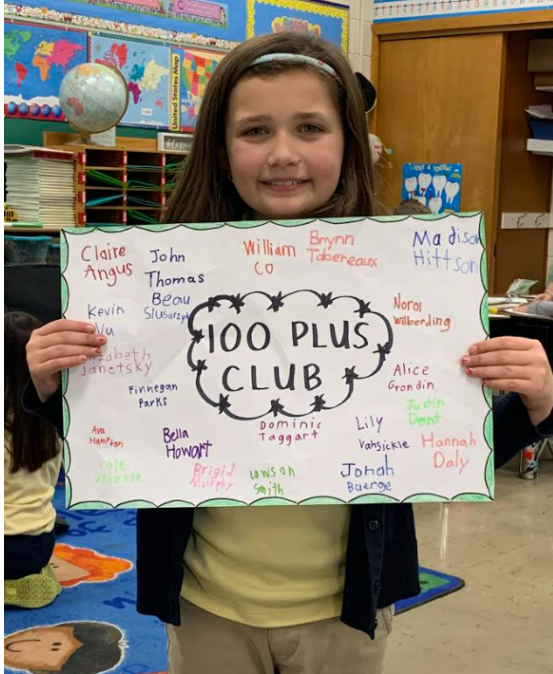 United States Map
Claire
Angus
John
Thomas
Beau
Slusarzyk
William
Co
Brynn
Tabereaux
Madison
Hittson
Kevin
Vu
100 PLUS
CLUB
Nora
Wilberding
Elizabeth
Janetsky
Finnegan
Parks
Alice
Grondin
Justin
Dent
Ava
Hampton
Bella
Howart
Dominic
Taggart
Lily
Vansickle
Hannah
Daly
Cole
Brigid
Murphy
Lawson
Smith
Jonah
Baerge